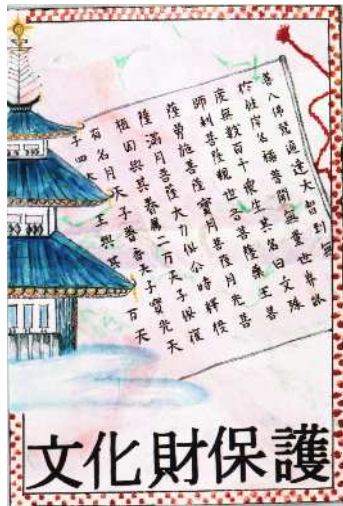 善入佛慧通達大智到無
於彼岸名稱普聞無量世界能
度無數百千衆生其名曰文殊
師利菩薩觀世音菩薩藥王菩
薩勇施菩薩寶月菩薩月光菩
薩滿月菩薩大力 時釋提
桓因與其眷屬二万天子俱復
有名月天子普香天子寶光天
子四大 王與其 万天
文化財保護